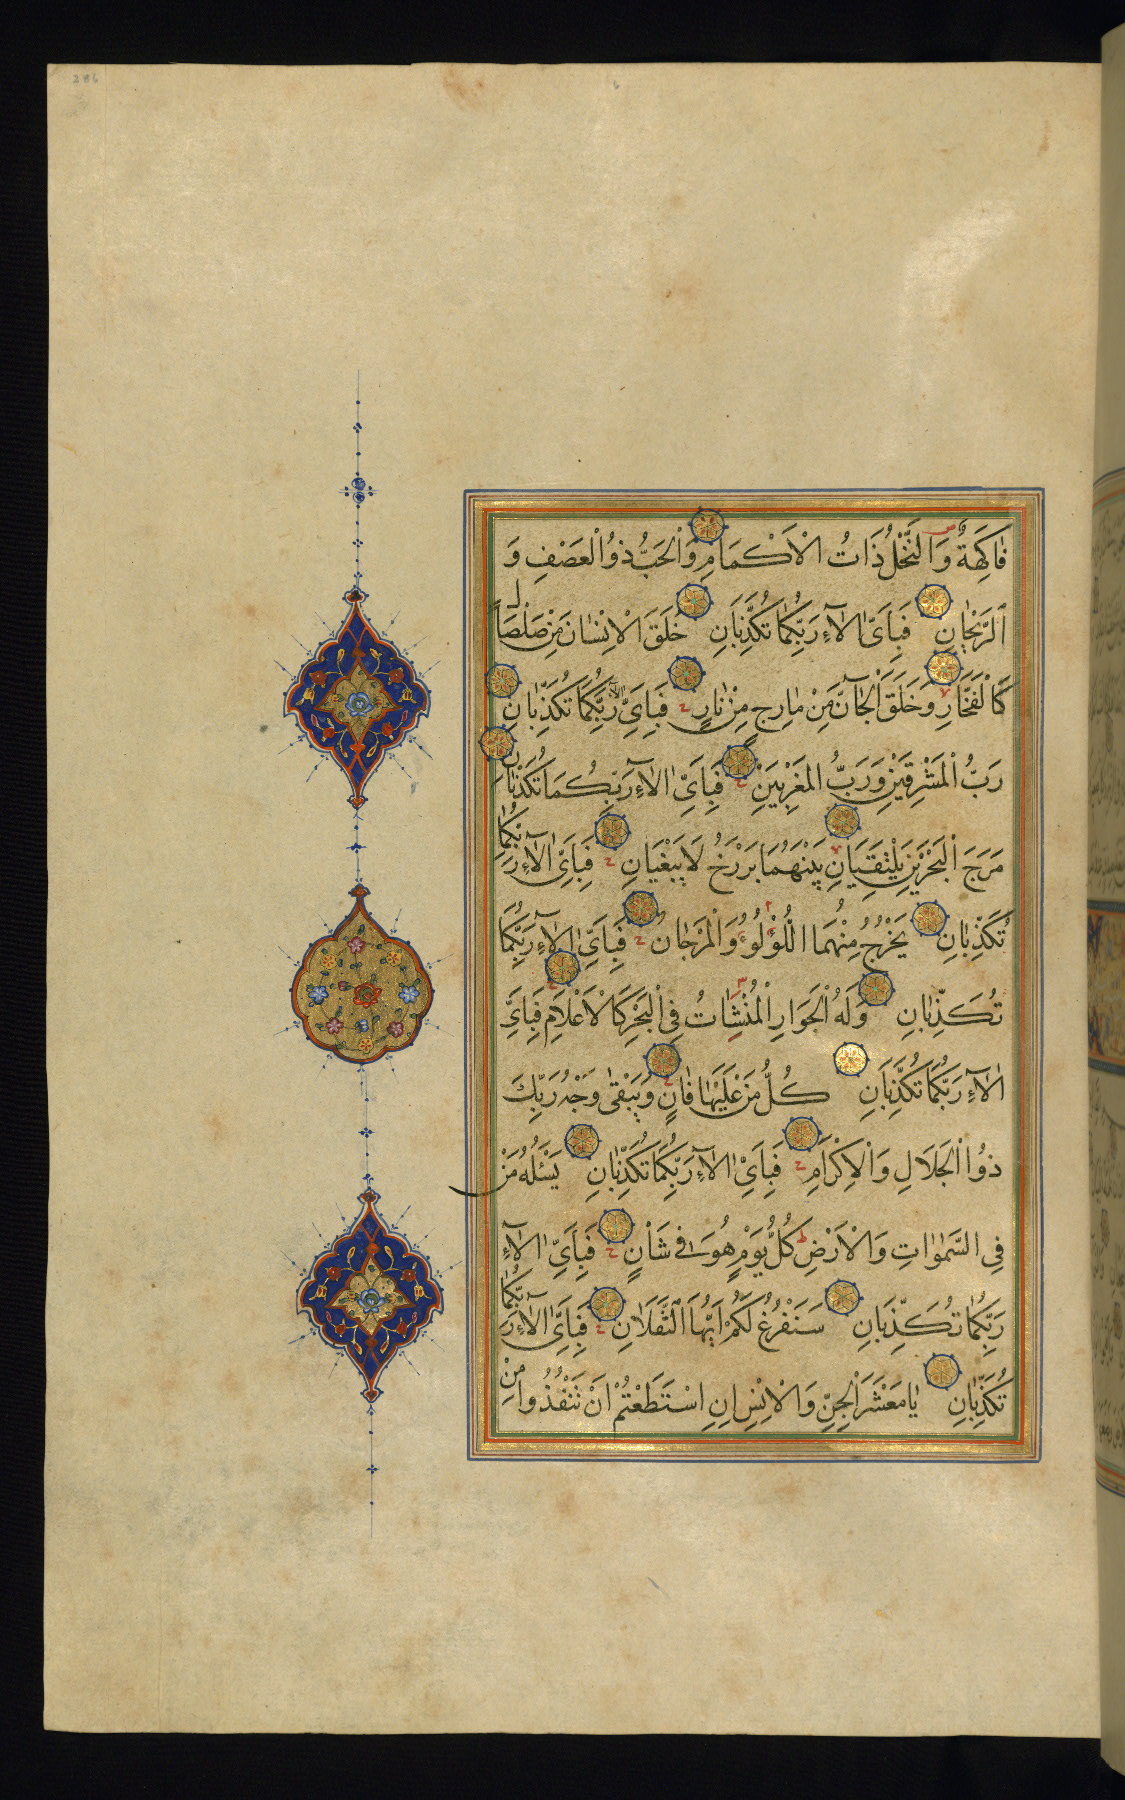 286
فَاكِهَةٌ وَالنَّخْلُ ذَاتُ الْاَكْمَامِ وَالْحَبُّ ذُو الْعَصْفِ وَ
الرَّيْحَانِ فَبِاَيِّ اٰلَآءِ رَبِّكُمَا تُكَذِّبَانِ خَلَقَ الْاِنْسَانَ مِنْ صَلْصَالٍ
كَالْفَخَّارِ وَخَلَقَ الْجَآنَّ مِنْ مَارِجٍ مِنْ نَارٍ فَبِاَيِّ اٰلَآءِ رَبِّكُمَا تُكَذِّبَانِ
رَبُّ الْمَشْرِقَيْنِ وَرَبُّ الْمَغْرِبَيْنِ فَبِاَيِّ اٰلَآءِ رَبِّكُمَا تُكَذِّبَانِ
مَرَجَ الْبَحْرَيْنِ يَلْتَقِيَانِ بَيْنَهُمَا بَرْزَخٌ لَا يَبْغِيَانِ فَبِاَيِّ اٰلَآءِ رَبِّكُمَا
تُكَذِّبَانِ يَخْرُجُ مِنْهُمَا اللُّؤْلُؤُ وَالْمَرْجَانُ فَبِاَيِّ اٰلَآءِ رَبِّكُمَا
تُكَذِّبَانِ وَلَهُ الْجَوَارِ الْمُنْشَاٰتُ فِي الْبَحْرِ كَالْاَعْلَامِ فَبِاَيِّ
اٰلَآءِ رَبِّكُمَا تُكَذِّبَانِ كُلُّ مَنْ عَلَيْهَا فَانٍ وَيَبْقٰى وَجْهُ رَبِّكَ
ذُو الْجَلَالِ وَالْاِكْرَامِ فَبِاَيِّ اٰلَآءِ رَبِّكُمَا تُكَذِّبَانِ يَسْئَلُهُ مَنْ
فِي السَّمٰوَاتِ وَالْاَرْضِ كُلَّ يَوْمٍ هُوَ فِي شَأْنٍ فَبِاَيِّ اٰلَآءِ
رَبِّكُمَا تُكَذِّبَانِ سَنَفْرُغُ لَكُمْ اَيُّهَا الثَّقَلَانِ فَبِاَيِّ اٰلَآءِ رَبِّكُمَا
تُكَذِّبَانِ يَا مَعْشَرَ الْجِنِّ وَالْاِنْسِ اِنِ اسْتَطَعْتُمْ اَنْ تَنْفُذُوا مِنْ